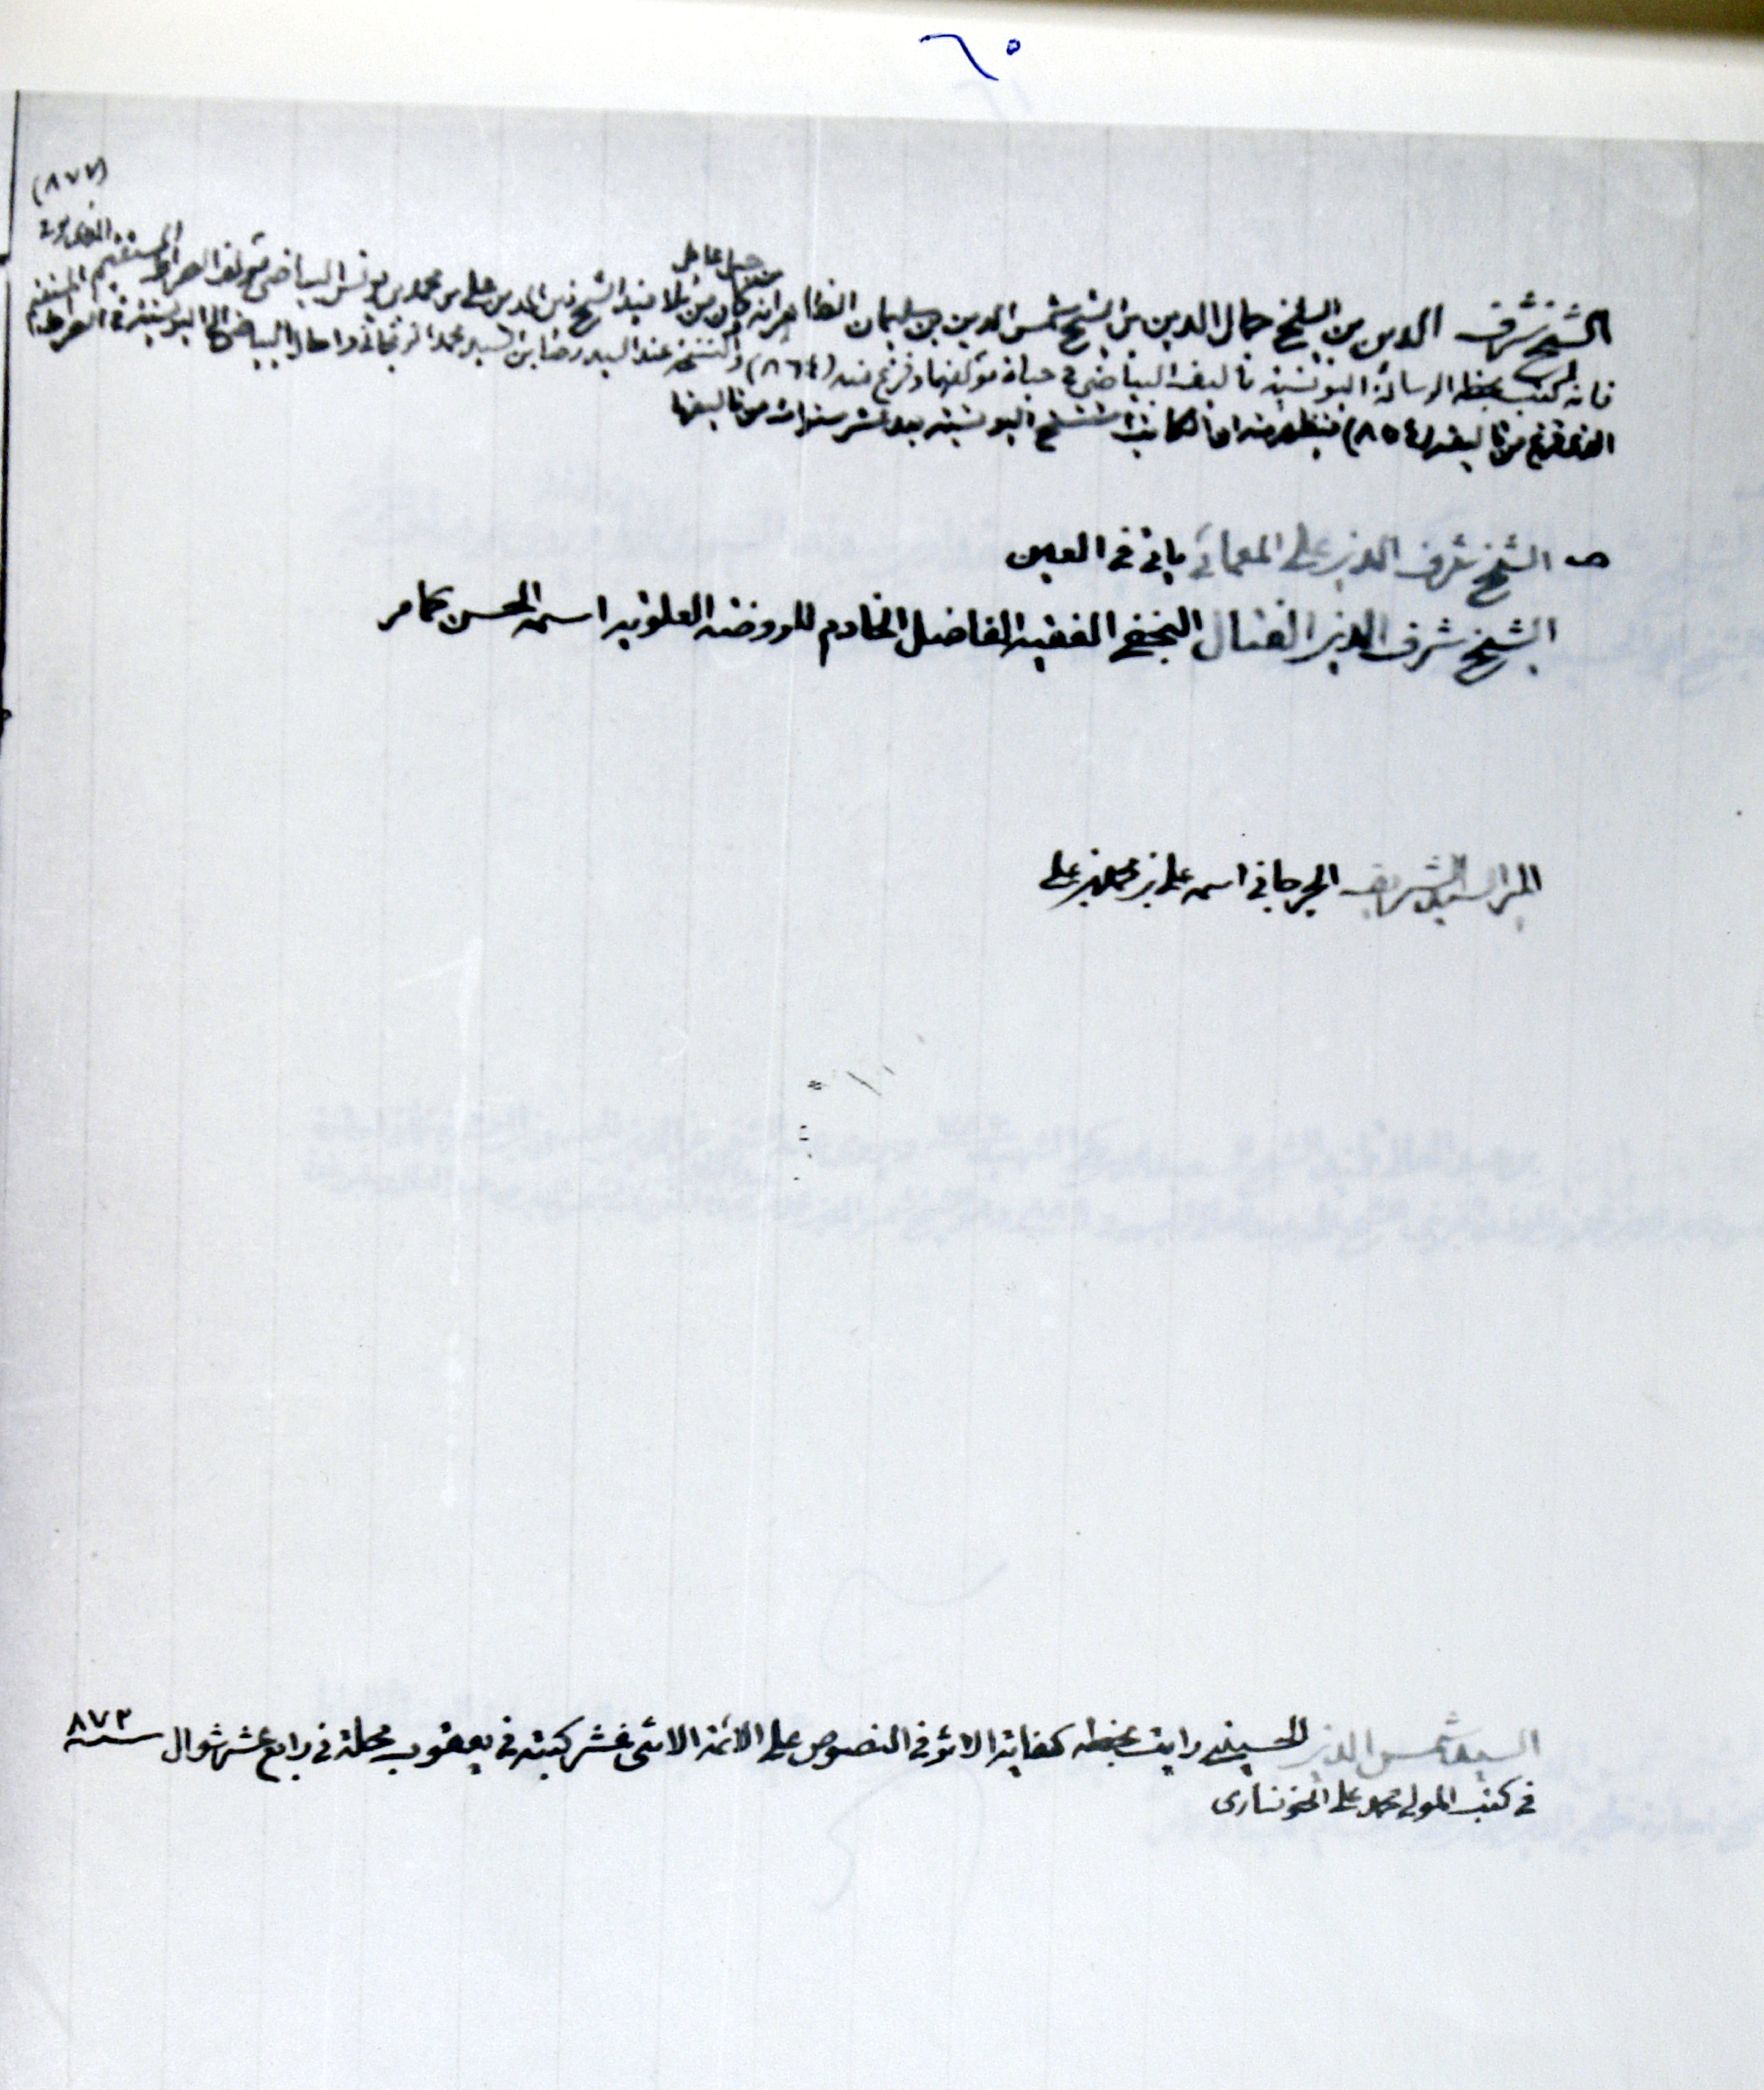 ٦٥
(٨٧٧)
من جبل عامل
الشيخ شرف الدين بن الشيخ جمال الدين بن الشيخ شمس الدين بن سليمان الظاهر انه كان من تلاميذ الشيخ زين الدين علي بن محمد بن يونس البياضي مؤلف الصراط المستقيم المتوفى
فانه كتب بخطه الرسالة اليونسية تأليف البياضي في حياة مؤلفها وفرغ منه (٨٦٤) والنسخة عند السيد رضا بن السيد محمد الزنجاني واحال البياضي الى اليونسية في الصراط
الذي فرغ من تأليفه (٨٥٤) فيظهر منه ان الكاتب استنسخ اليونسية بعد عشر سنوات من تأليفها
الشيخ شرف الدين علي المعمائي ياتي في العين
الشيخ شرف الدين الفتال النجفي الفقيه الفاضل الخادم للروضة العلوية اسمه الحسن كما مر
المير السيد الشريف الجرجاني اسمه علي بن محمد بن علي
السيد شمس الدين الحسيني رايت بخطه كفاية الاثر في النصوص على الائمة الاثنى عشر كتبه في يعقوب محلة في رابع عشر شوال سنة ٨٧٣
في كتب المولى محمد علي الخونساري